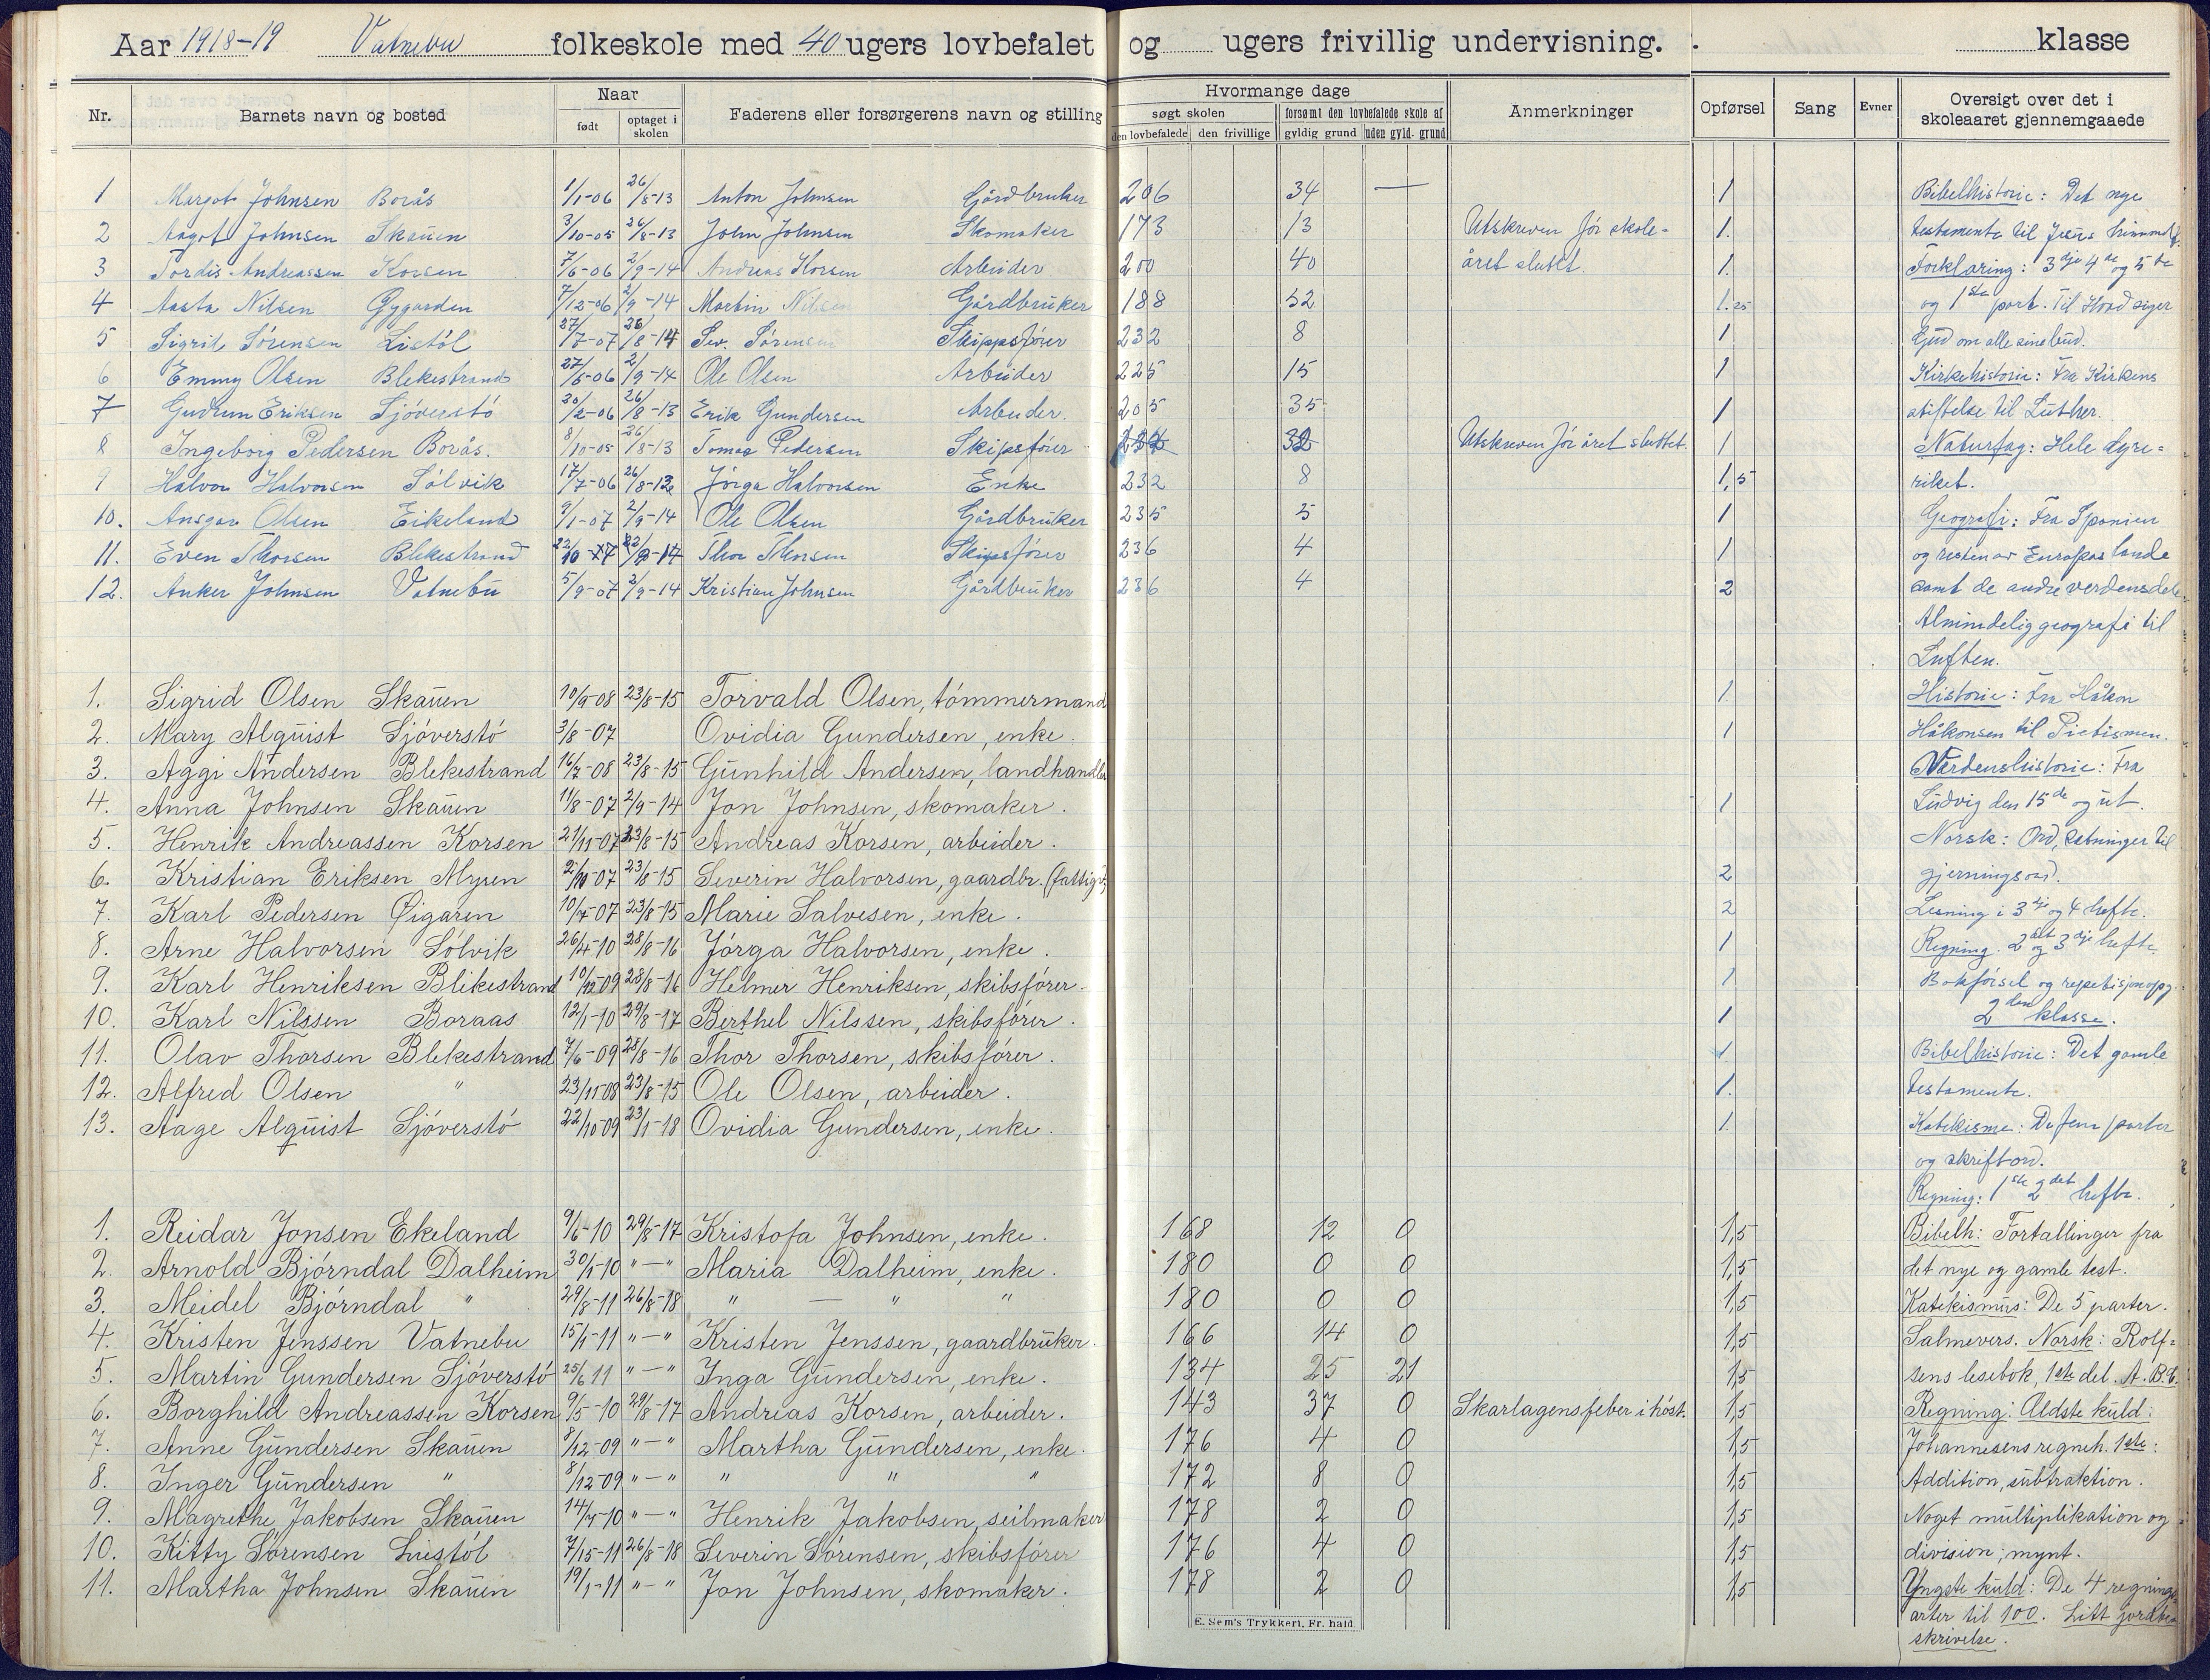 Aar 1918-19 Vatnebu folkeskole med 40 ugers lovbefalet og ugers frivillig undervisning. klasse
Nr. Barnets navn og bosted Naar født optaget i skolen Faderens eller forsørgerens navn og stilling Hvormange dage søgt skolen den lovbefalede den frivillige forsømt den lovbefalede skole af gyldig grund uden gyld. grund Anmerkninger Opførsel Sang Evner Oversigt over det i skoleaaret gjennemgaaede
1 Margot Johnsen Borås 1/1-06 26/8-13 Anton Johnsen Gårdbruker 206 34 — 1 Bibelhistorie: Det nye
2 Aagot Johnsen Skauen 3/10-05 26/8-13 John Johnsen Skomaker 173 13 Utskreven för skole- 1. testamente til Jesus
3 Tordis Andreassen Korsen 7/6-06 2/9-14 Andreas Korsen Arbeider 200 40 året sluttet. 1. Forklaring: 3dje 4de og 5te
4 Aasta Nilsen Gygarden 7/12-06 2/9-14 Martin Nilsen Gårdbruker 188 52 1.25 og 1ste part. Til Hvad siger
5 Sigrid Sörensen Listöl 27/7-07 26/8-14 Sev. Sörensen Skippsförer 232 8 1 Gud om alle sine bud.
6 Emmy Olsen Blekestrand 27/5-06 2/9-14 Ole Olsen Arbeider 225 15 1 Kirkehistorie: Fra Kirkens
7 Gudrun Eriksen Sjöverstö 20/2-06 26/8-13 Erik Gundersen Arbeider. 205 35 1 stiftelse til Luther.
8 Ingeborg Pedersen Borås. 8/10-05 26/8-13 Tomas Pedersen Skipsförer 32 Utskreven för året sluttet. 1 Naturfag: Hele dyre-
9 Halvor Halvorsen Sölvik 17/7-06 26/8-12 Jörga Halvorsen Enke 232 8 1,5 riket.
10. Ansgar Olsen Eikeland 9/1-07 2/9-14 Ole Olsen Gårdbruker 235 5 1 Geografi: Fra Spanien
11. Even Thorsen Blekestrand 22/10-07 Thor Thorsen Skipsförer 236 4 1 og resten av Europas lande
12. Anker Johnsen Vatnebu 5/9-07 2/9-14 Kristian Johnsen Gårdbruker 236 4 2 samt de andre verdensdele.
Almindelig geografi til
Luften.
1. Sigrid Olsen Skauen 10/9-08 23/8-15 Torvald Olsen, tömmermand 1. Historie: Fra Håkon
2. Mary Alquist Sjöverstö 3/8-07 Ovidia Gundersen, enke. 1 Håkonsen til Pietismen.
3. Aggi Andersen Blekestrand 16/7-08 23/8-15 Gunhild Andersen, landhandler Verdenshistorie: Fra
4. Anna Johnsen Skauen 11/8-07 2/9-14 Jon Johnsen, skomaker. 1 Ludvig den 15de og ut.
5. Henrik Andreassen Korsen 21/11-07 23/8-15 Andreas Korsen, arbeider. Norsk: Ord, setninger til
6. Kristian Eriksen Myren 2/10-07 23/8-15 Severin Halvorsen, gaardbr. (fattigv.) 2 gjerningsord.
7. Karl Pedersen Øigaren 10/7-07 23/8-15 Marie Salvesen, enke. 2 Lesning i 3dje og 4 hefte.
8. Arne Halvorsen Sölvik 26/4-10 28/8-16 Jörga Halvorsen, enke. 1 Regning. 2det og 3dje hefte.
9. Karl Henriksen Blekestrand 10/12-09 28/8-16 Helmer Henriksen, skibsförer. 1 Bokförsel og repetisjonopg.
10. Karl Nilssen Boraas 12/1-10 29/8-17 Berthel Nilssen, skibsförer. 1 2den klasse.
11. Olav Thorsen Blekestrand 7/6-09 28/8-16 Thor Thorsen, skibsförer. 1. Bibelhistorie: Det gamle
12. Alfred Olsen " 23/11-08 23/8-15 Ole Olsen, arbeider. 1. testamente.
13. Aage Alquist Sjöverstö 22/10-09 23/1-18 Ovidia Gundersen, enke. 1. Katekisme: De fem parter
og skriftord.
Regning: 1ste 2det hefte.
1. Reidar Jonsen Ekeland 9/6-10 29/8-17 Kristofa Johnsen, enke. 168 12 0 1,5 Bibelh: Fortallinger fra
2. Arnold Bjørndal Dalheim 30/1-10 "—" Maria Dalheim, enke. 180 0 0 1,5 det nye og gamle test.
3. Meidel Bjørndal " 29/8-11 26/8-18 " — " " 180 0 0 1,5 Katekismus: De 5 parter.
4. Kristen Jenssen Vatnebu 15/1-11 "—" Kristen Jenssen, gaardbruker. 166 14 0 1,5 Salmevers. Norsk: Rolf-
5. Martin Gundersen Sjöverstö 25/6 11 "—" Inga Gundersen, enke. 134 25 21 1,5 sens lesebok, 1ste del. A.B.C.
6. Borghild Andreassen Korsen 9/5-10 29/8-17 Andreas Korsen, arbeider. 143 37 0 Skarlagensfeber i höst. 1,5 Regning: Aldste kuld:
7. Anne Gundersen Skauen 8/12-09 "—" Martha Gundersen, enke. 176 4 0 1,5 Johannesens regneh. 1ste:
8. Inger Gundersen " 8/12-09 "—" " " " 172 8 0 1,5 Addition, subtraktion.
9. Magrethe Jakobsen Skauen 14/7-10 "—" Henrik Jakobsen, seilmaker 178 2 0 1,5 Noget multiplikation og
10. Kitty Sörensen Liestöl 26/8-18 Severin Sörensen, skibsförer 176 4 0 1,5 division; mynt.
11. Martha Johnsen Skauen 19/1-11 "—" Jon Johnsen, skomaker. 178 2 0 1,5 Yngste kuld: De 4 regnings
arter til 100. Litt jordbe-
skrivelse.
E. Sem's Trykkeri, Fr. hald.